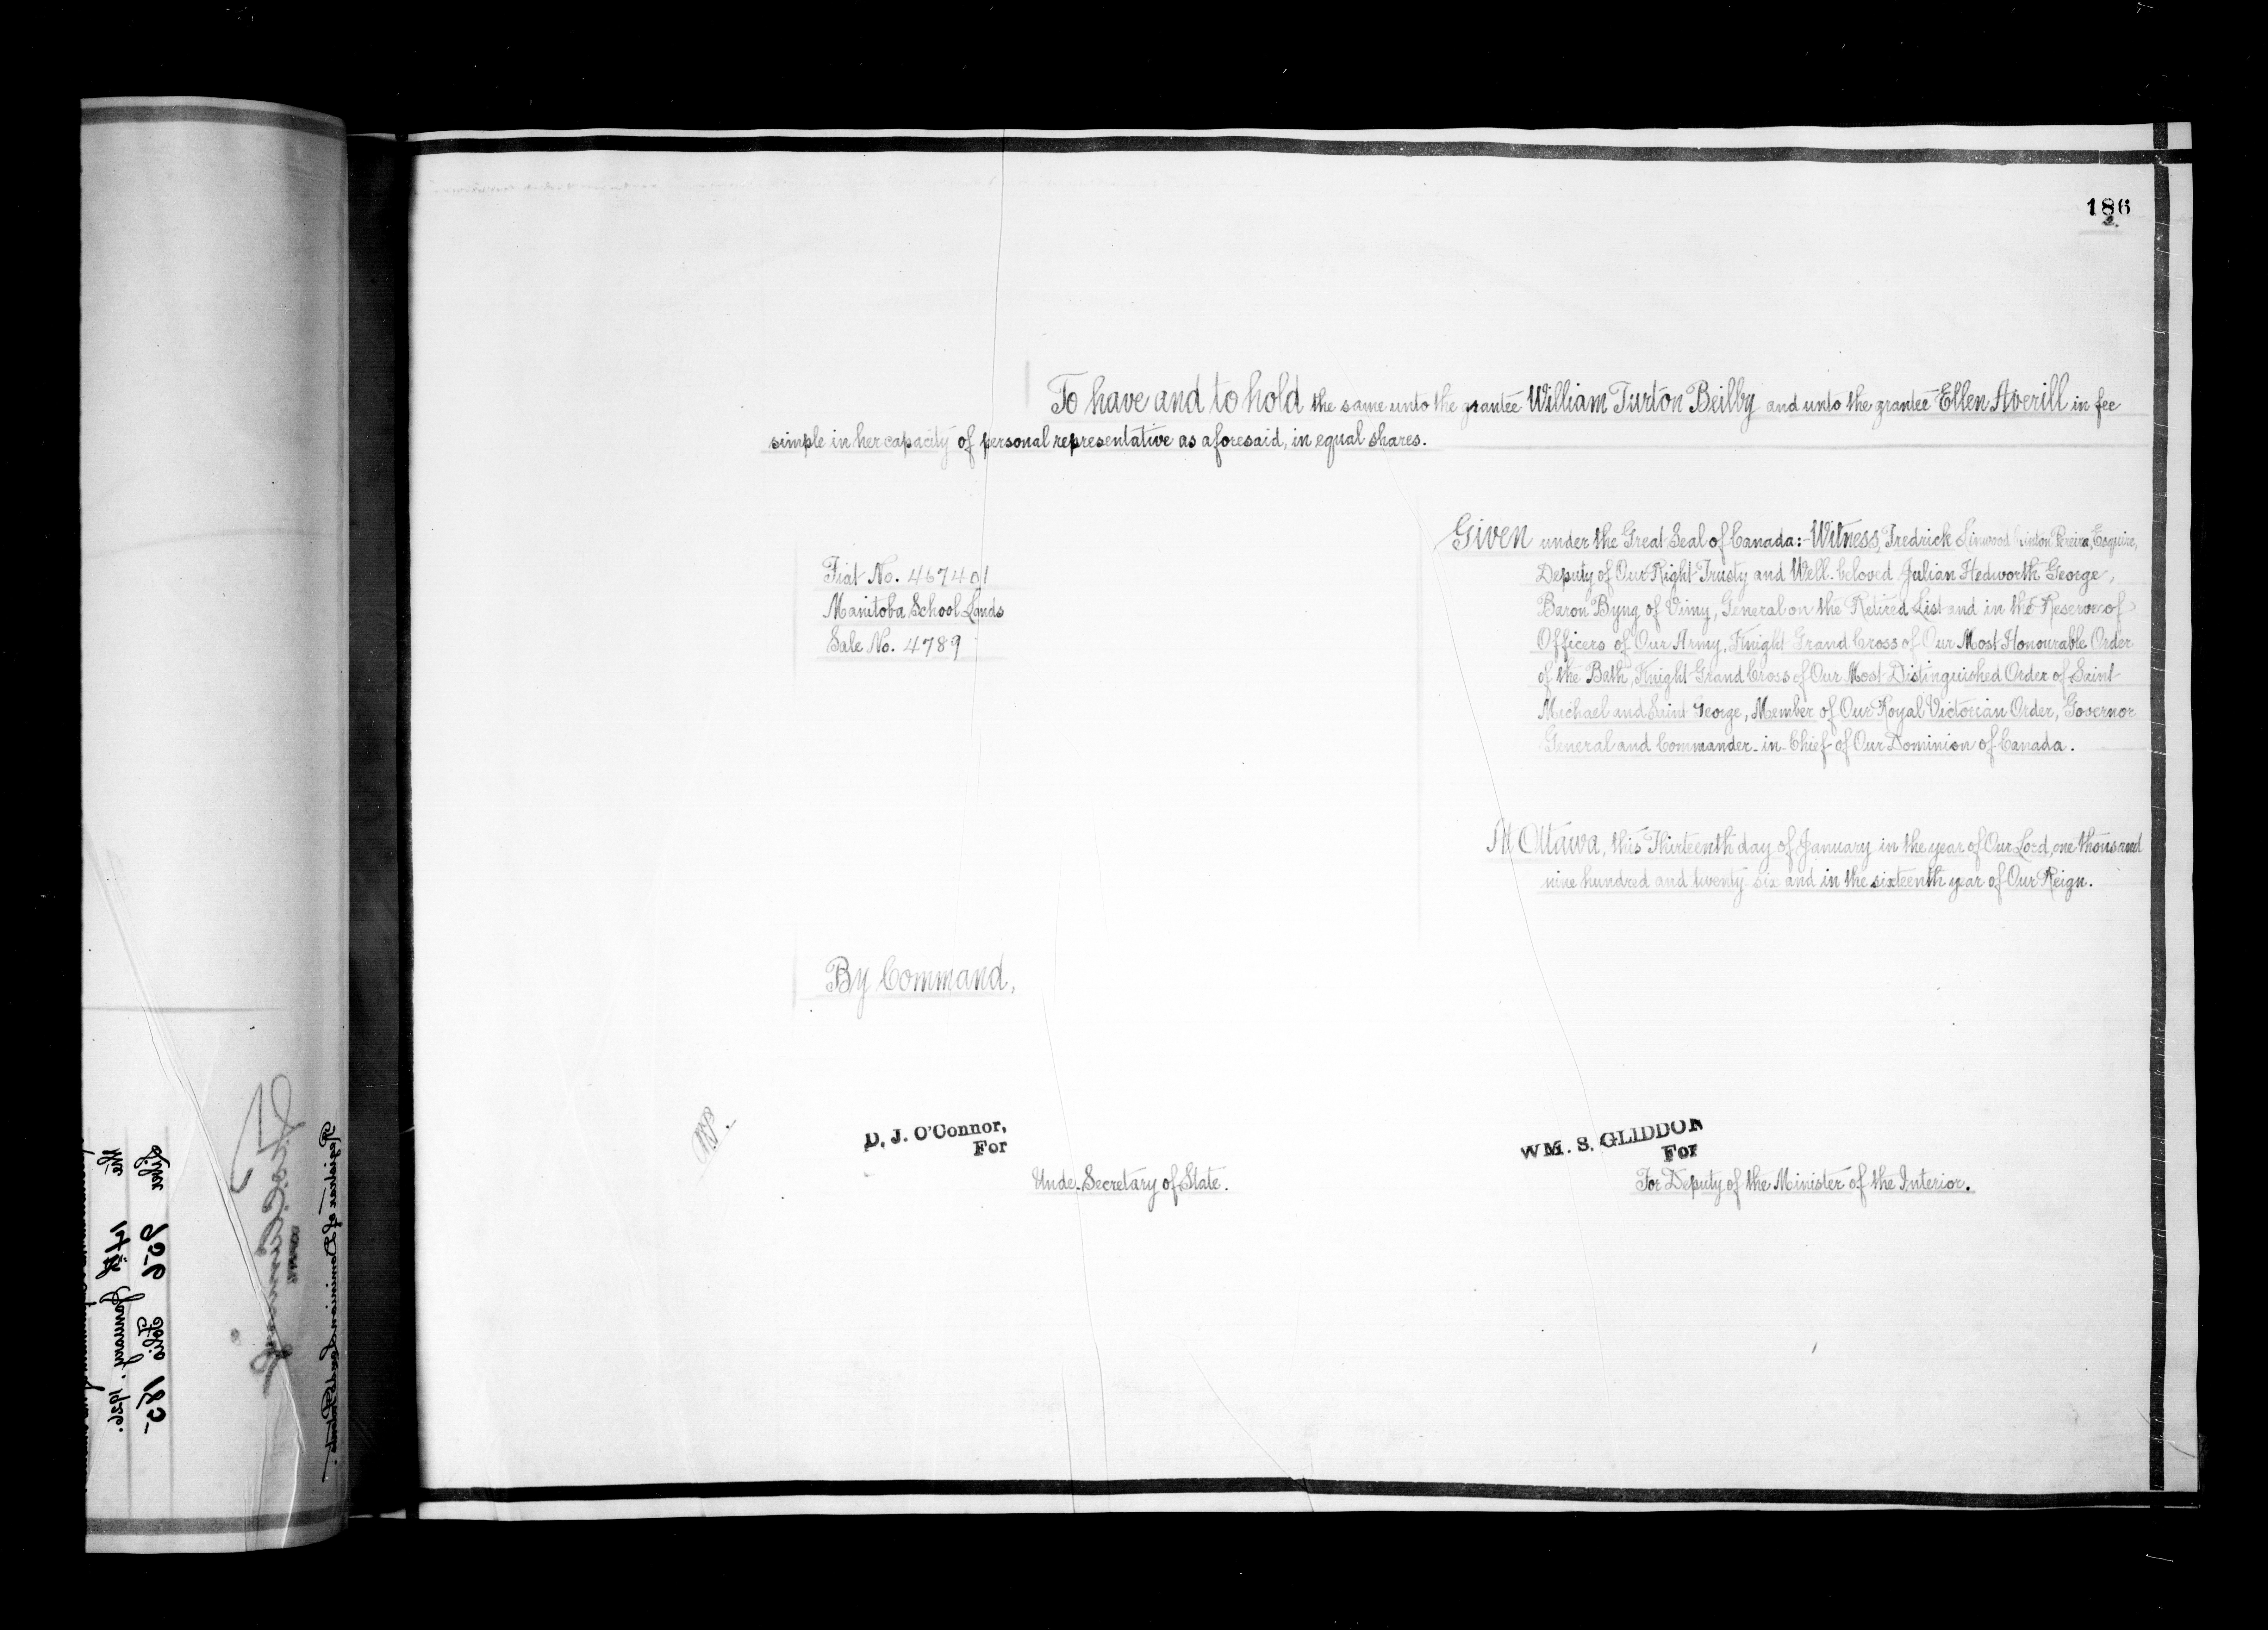 186
2.
To have and to hold the same unto the grantee William Turton Beilby and unto the grantee Ellen Averill in fee
simple in her capacity of personal representative as aforesaid, in equal shares.
Given under the Great Seal of Canada:- Witness, Fredrick Linwood Clinton Pereira, Esquire,
Deputy of Our Right Trusty and Well-beloved Julian Hedworth George,
Baron Byng of Vimy, General on the Retired List and in the Reserve of
Officers of Our Army, Knight Grand Cross of Our Most Honourable Order
of the Bath, Knight Grand Cross of Our Most Distinguished Order of Saint
Michael and Saint George, Member of Our Royal Victorian Order, Governor
General and Commander-in-Chief of Our Dominion of Canada.
Fiat No. 467401
Manitoba School Lands
Sale No. 4789
At Ottawa, this Thirteenth day of January in the year of Our Lord, one thousand
nine hundred and twenty-six and in the sixteenth year of Our Reign.
By Command,
D. J. O'Connor,
For
Unde-Secretary of State.
WM. S. GLIDDON
For
For Deputy of the Minister of the Interior.
Registrar of Dominion Lands Patents.
Liber 706 Folio 185
the 14th January, 1926.